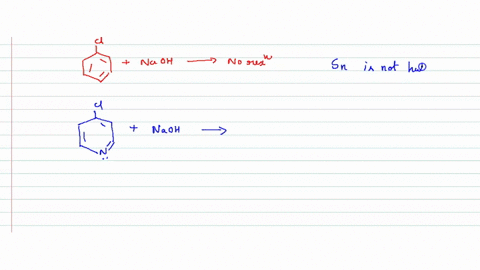 Cl
+ NaOH → No rexⁿ
Sn is not
Cl
+ NaOH →
N